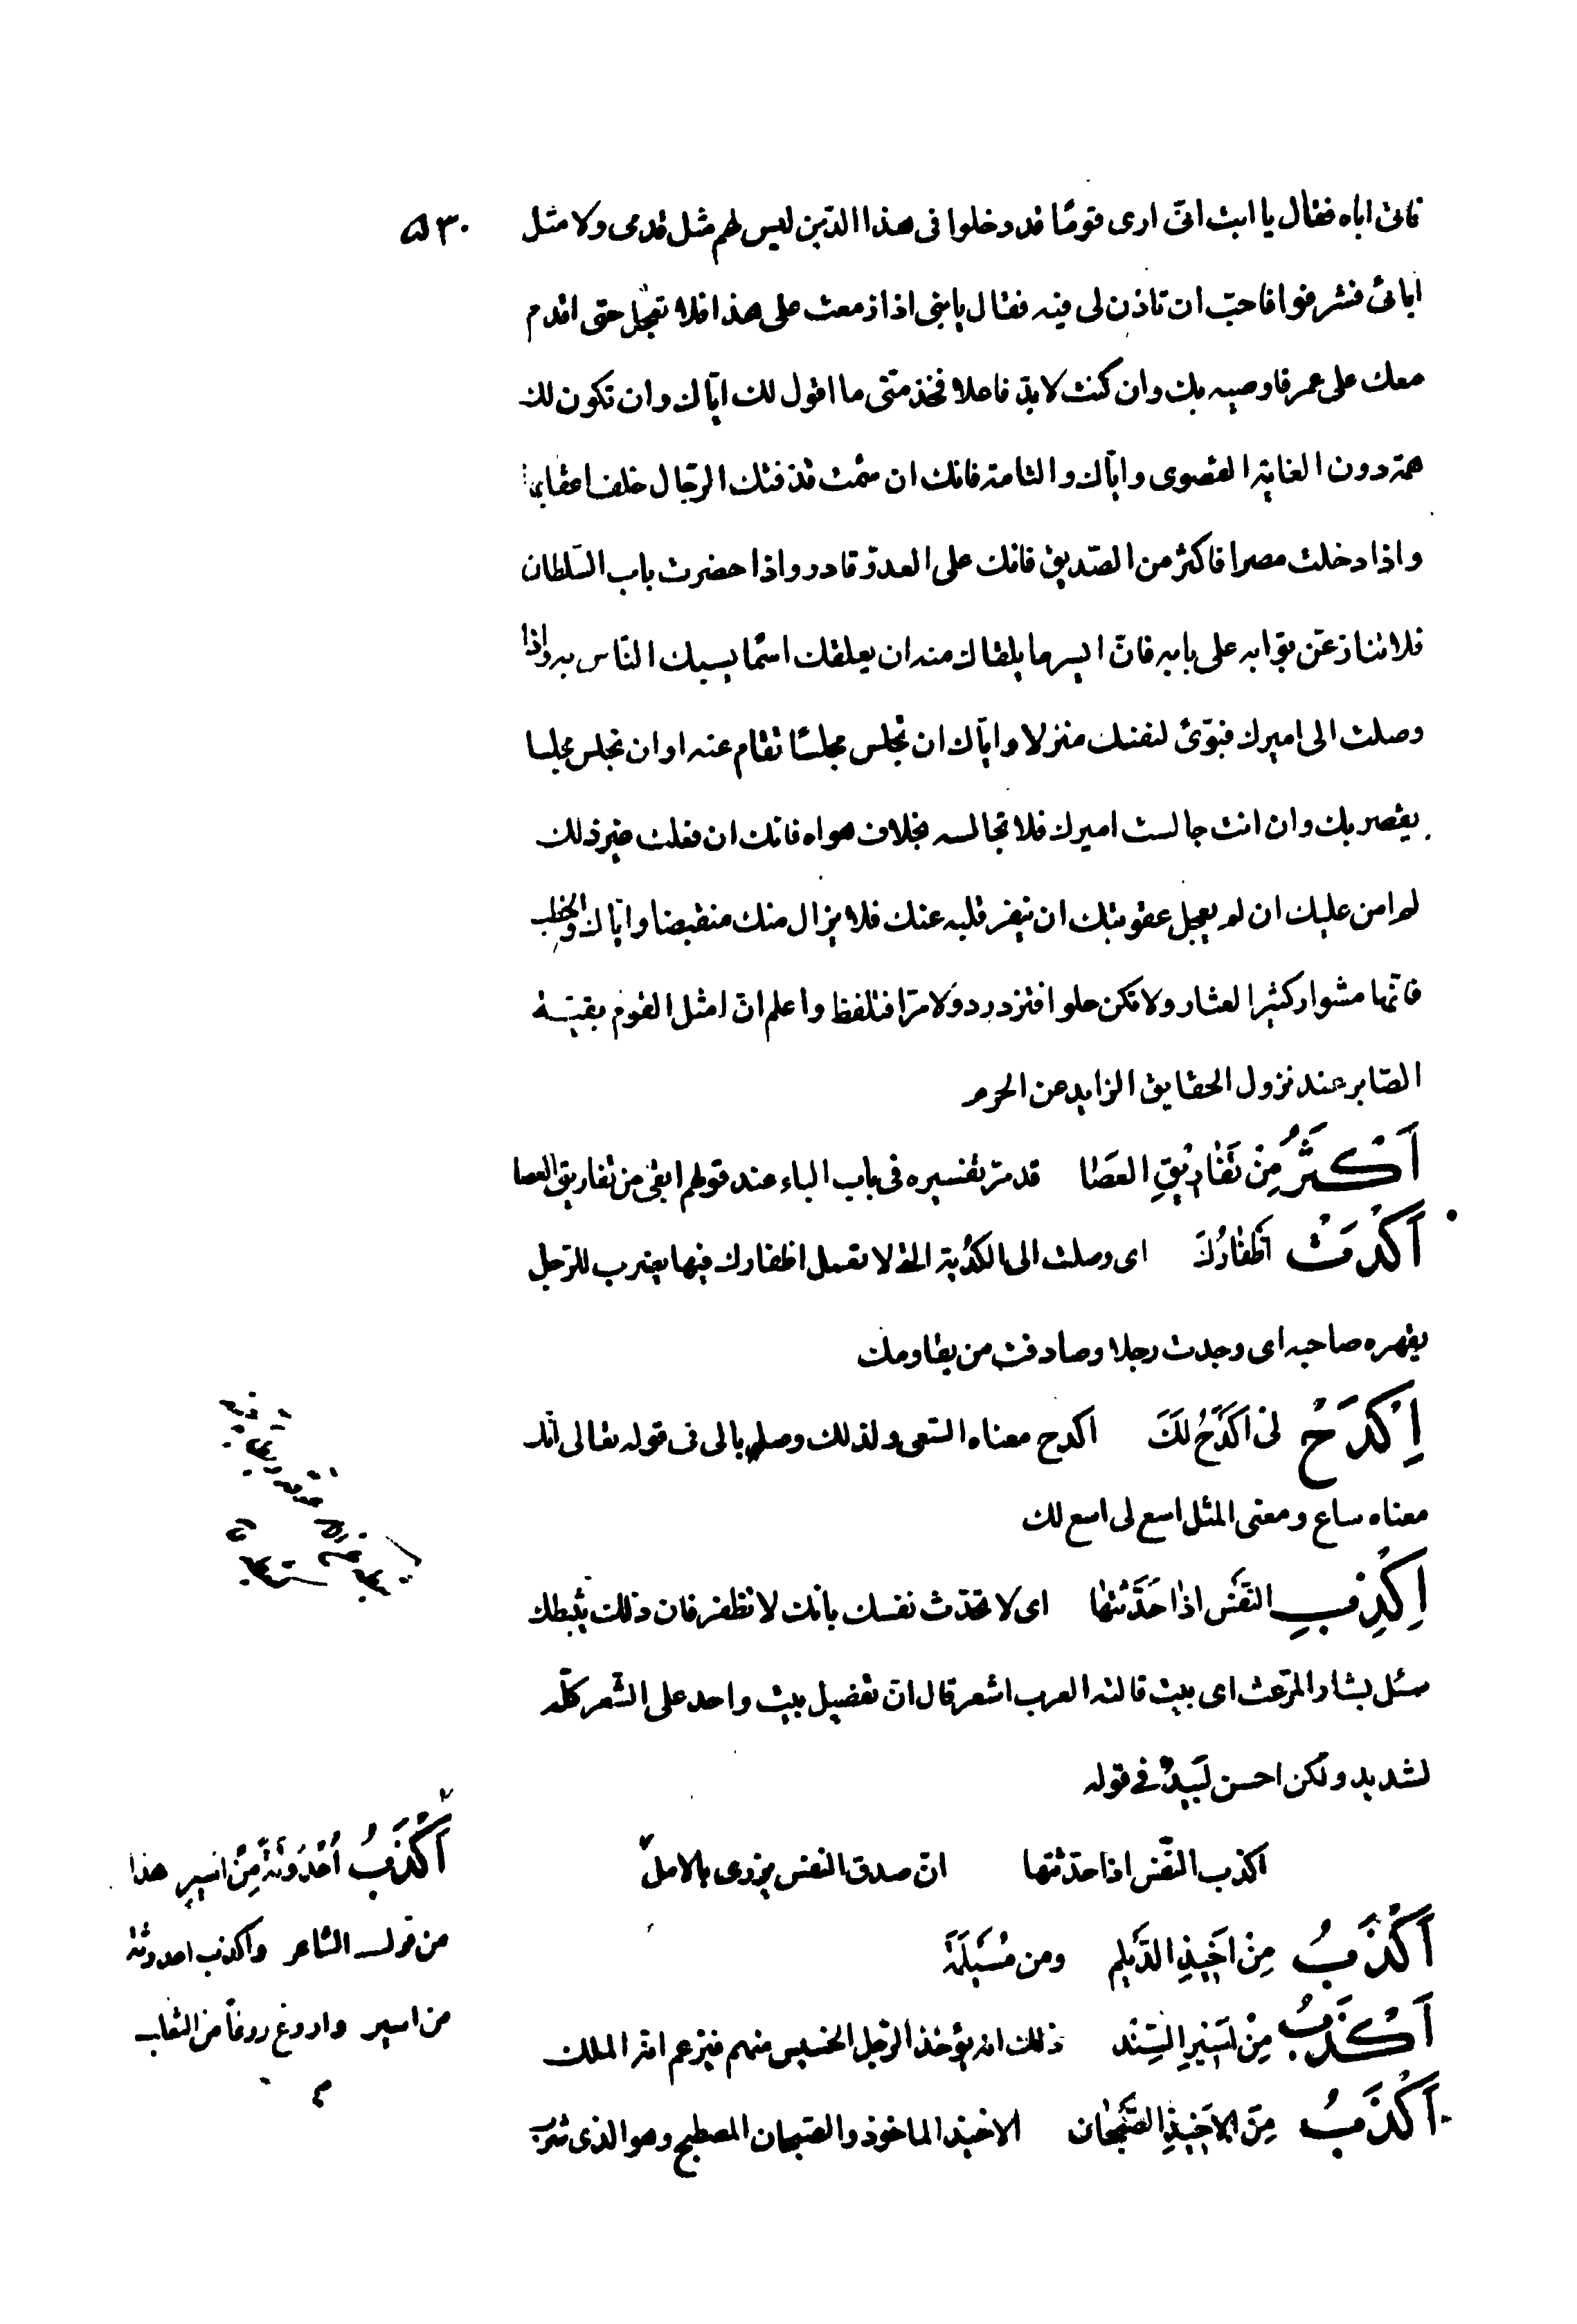 فاتى اباه فقال يا ابت انّى ارى قومًا قد دخلوا فى هذا الدّين ليس لهم مثل قدمى ولا مثل
٥٣٠
ابائى فشرفوا فاحبّ ان تاذن لى فيه فقال يا بنى اذا ازمعت على هذا فلا تعجل حتى اقدم
معك على عمر فاوصيه بك وان كنت لا بدّ فاعلا فخذ منّى ما اقول لك ايّاك وان تكون لك
همة دون الغاية القصوى وايّاك والسّامة فانك ان سئمت قذفتك الرجال خلف اعقابها
واذا دخلت مصرا فاكثر من الصّديق فانك على العدوّ قادر واذا حضرت باب السّلطان
فلا تنازعنّ بوّابه على بابه فانّ ايسر ما يلقاك منه ان يعلقك اسمًا يسبك النّاس به واذا
وصلت الى اميرك فبوّئ لنفسك منزلا وايّاك ان تجلس مجلسًا تقام عنه او ان تجلس مجلسا
يقصر بك وان انت جالست اميرك فلا تجالسه بخلاف هواه فانك ان فعلت غير ذلك
لم امن عليك ان لم يعجل عقوبتك ان ينفر قلبه عنك فلا يزال منك منقبضا وايّاك والخطب
فانّها مشوار كثير العثار ولا تكن حلوا فتزدرد ولا مرّا فتلفظ واعلم انّ امثل القوم بقيّة
الصّابر عند نزول الحقايق الذايد عن الحرم
اَكْثَرُ مِنْ تَفَارِيْقِ العَصَا قد مرّ تفسيره فى باب الباء عند قولهم ابقى من تفاريق العصا
اَكْدَتْ اَظْفَارُكَ اى وصلت الى الكُدْية التى لا تعمل اظفارك فيها يضرب للرّجل
يقهره صاحبه اى وجدت رجلا وصادفت من يقاومك
اِكْدَحْ لى اَكْدَحْ لَكَ اكدح معناه السّعى ولذلك وصله بالى فى قوله تعالى انّك
معناه ساع ومعنى المثل اسع لى اسع لك
اِكْذِبِ النَّفْسَ اذا حَدَّثْتَها اى لا تحدّث نفسك بانك لا تظفر فان ذلك يثبطك
سئل بشار المرّعث اى بيت قالته العرب اشعر قال انّ تفضيل بيت واحد على الشعر كلّه
لشديد ولكن احسن لَبِيدٌ فى قوله
اكذب النّفس اذا حدّثتها انّ صدق النفس يزرى بالامل
اَكْذَبُ مِنْ اَخِيذِ الدَّيْلم ومن مُسَيْلَمَةَ
اَكْذَبُ مِنْ اَسِيْرِ السِّنْد ذلك انه يؤخذ الرّجل الخسيس منهم فيزعم انّه الملك
اَكْذَبُ مِنَ الاَخِيْذِ الصَّبْحَان الاخيذ الماخوذ والصّبحان المصطبح وهو الذى شرب
اَكْذَبُ اُحْدُوثَةً مِنْ اسير هذا
من قول الشاعر واكذب احدوثة
من اسير واروغ روغاً من الثعلب